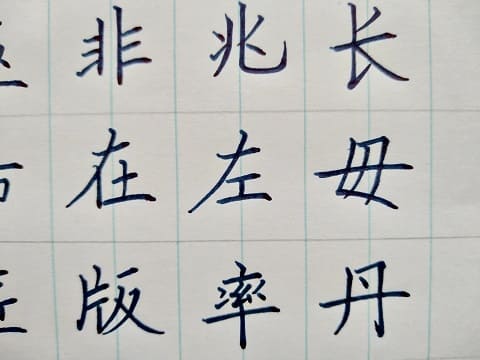 非兆长
在左毋
版率丹